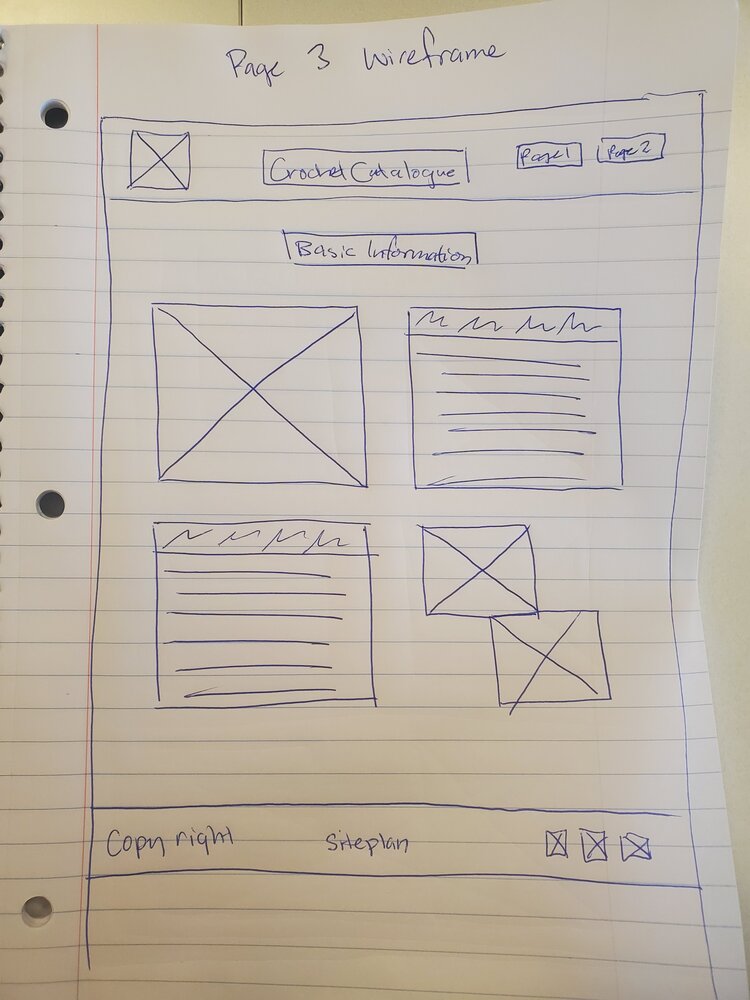 Page 3 Wireframe
Crochet Catalogue
Page 1
Page 2
Basic Information
Copy right
siteplan